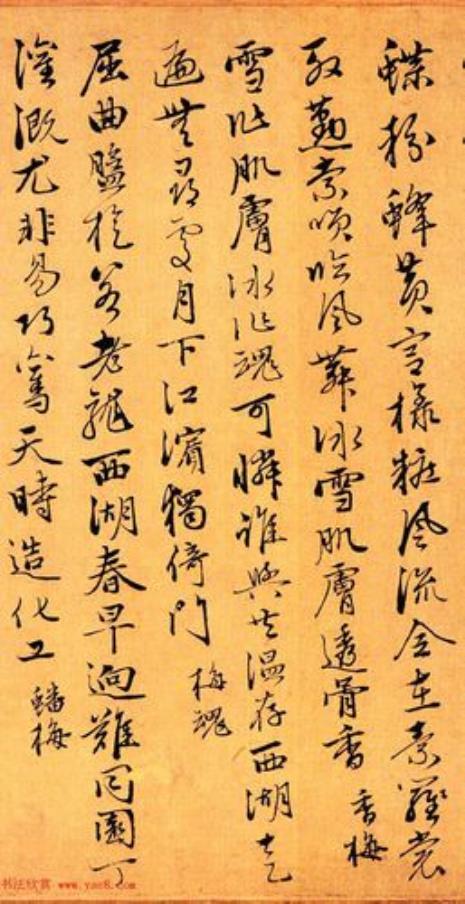 蝶粉蜂黄宫樣粧風流全在素羅裳
勤索唤吟風舞冰雪肌膚透骨香 香梅
雪作肌膚冰作魂可憐誰與共温存西湖
遍尋處月下江濱獨倚門 梅魂
屈曲盤旋若老龍西湖春早迥難同園丁
灌溉尤非易巧奪天時造化工 蟠梅
书法欣赏 www.yac8.com